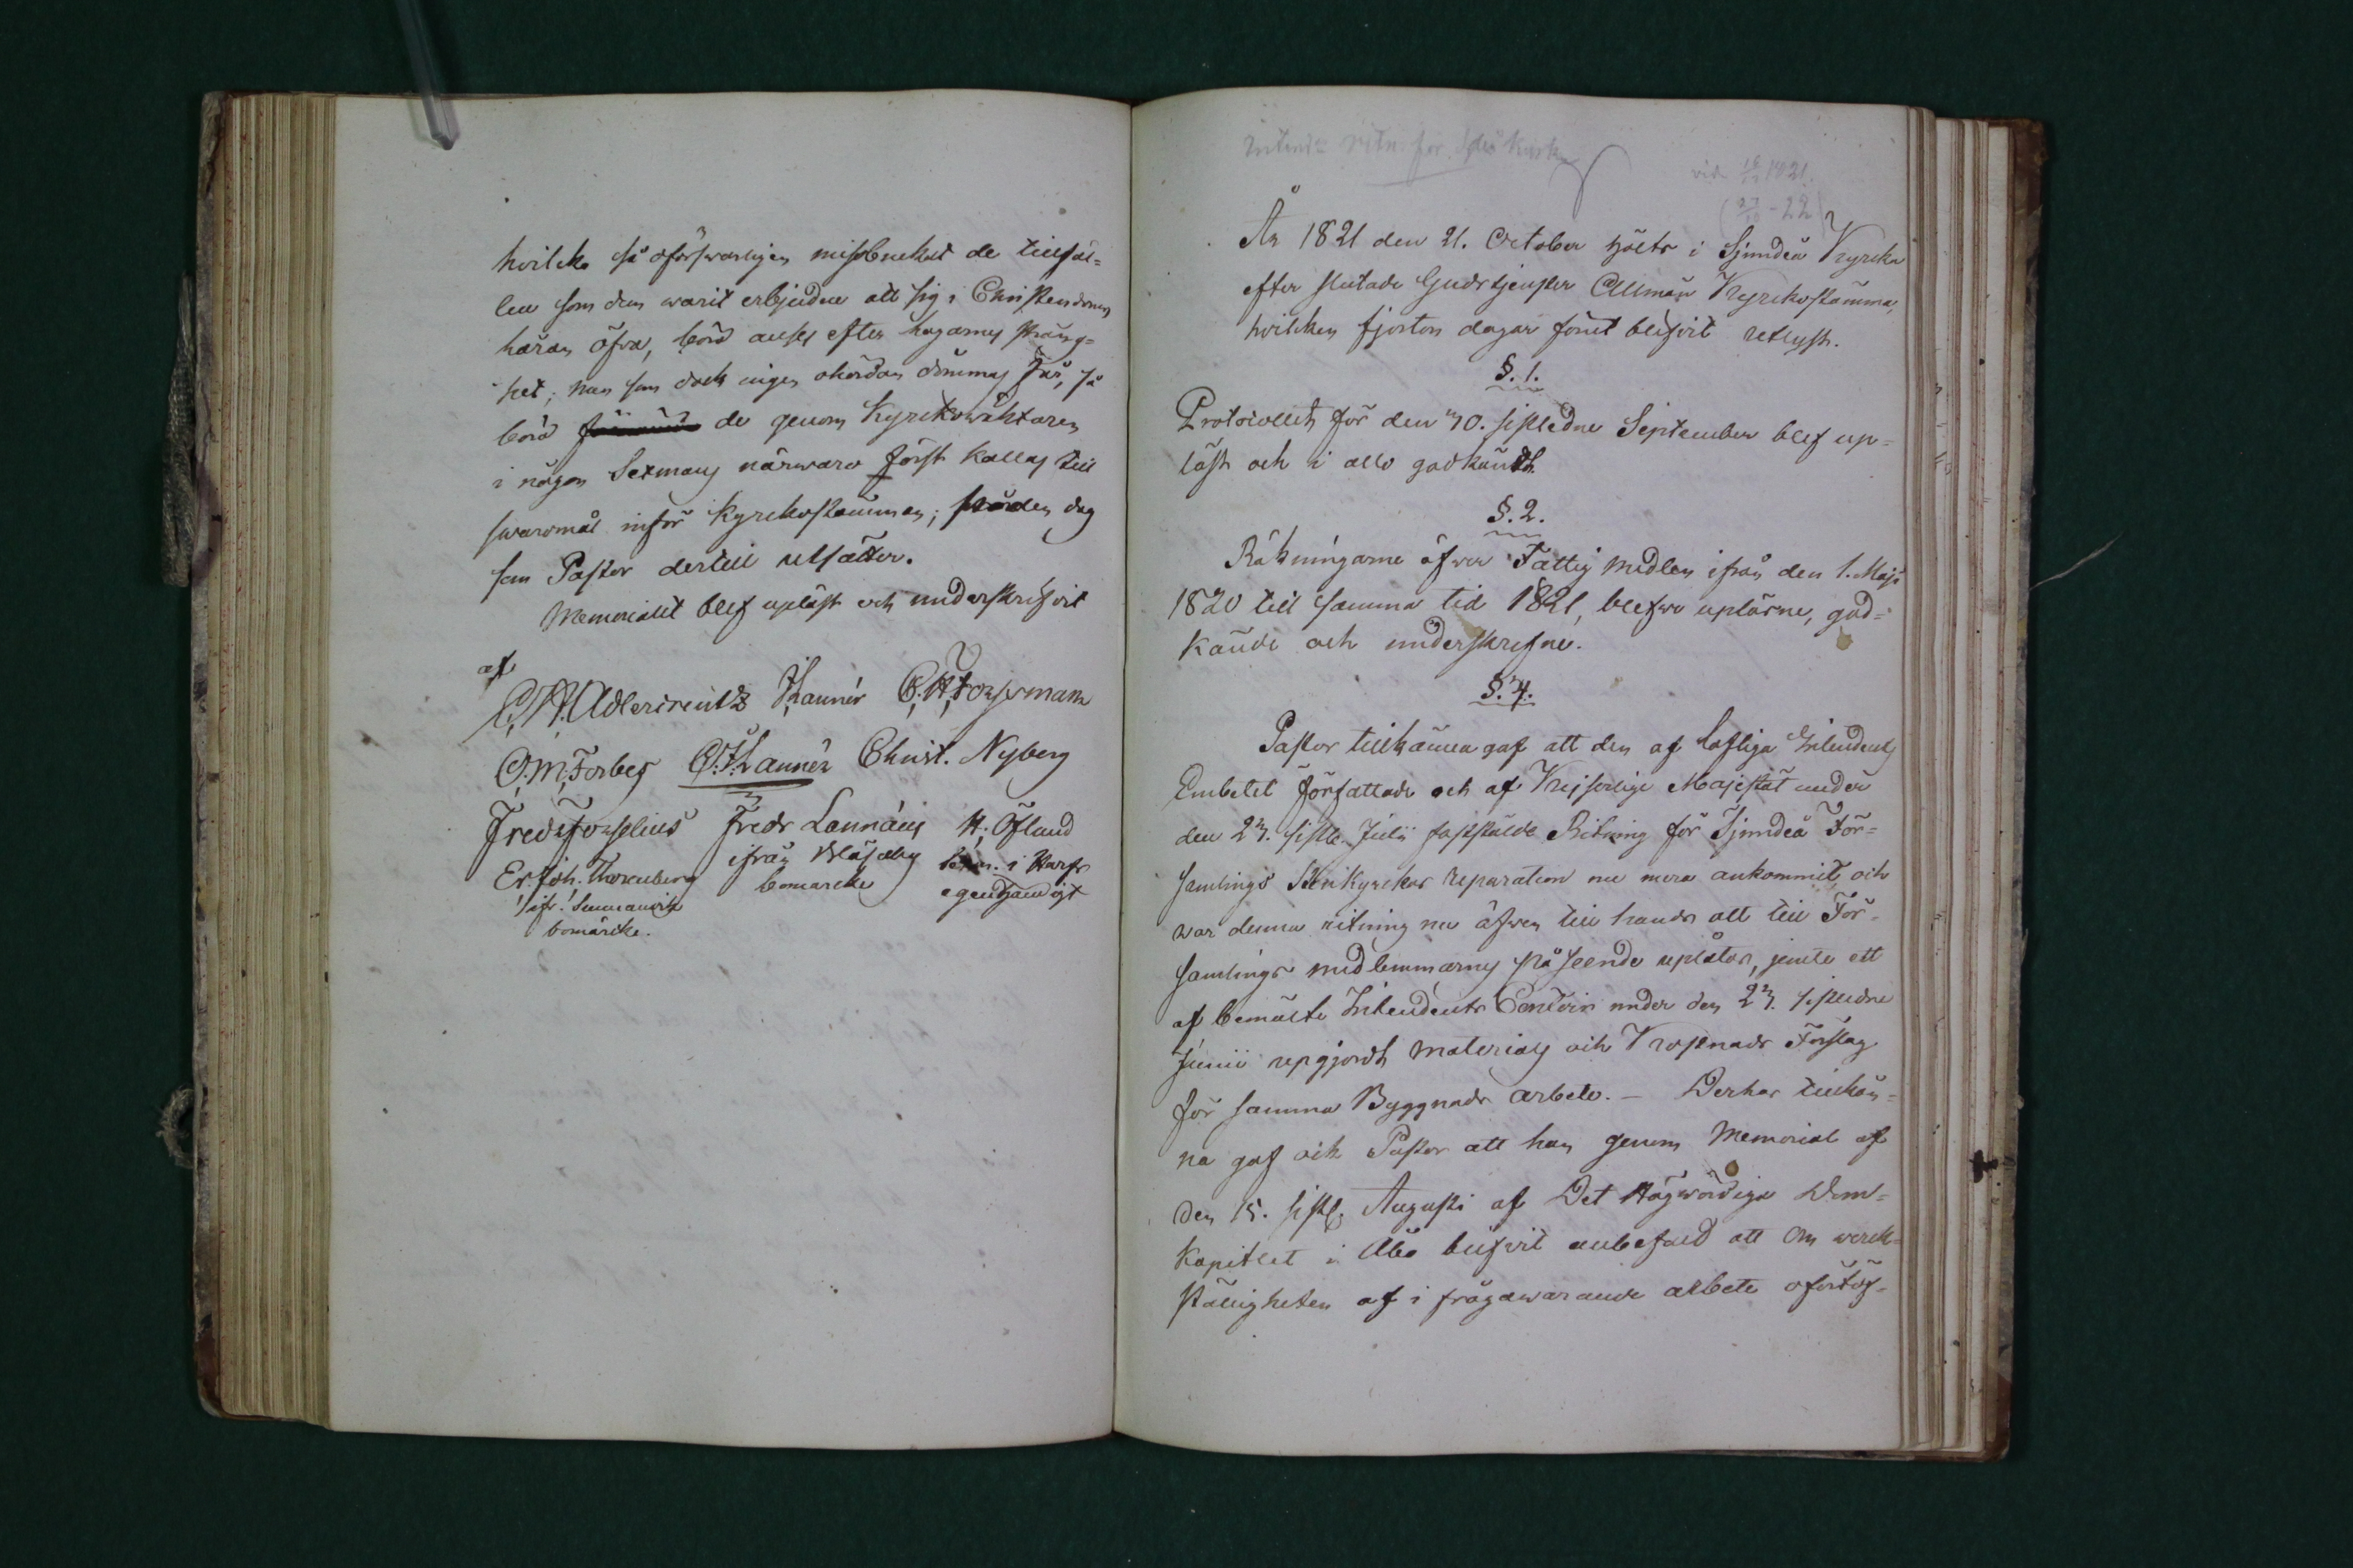 hvilcka så oförsvarligen missbrukat de tillfäl=
len som dem warit erbjudne att sig i Christendomen
häran öfva, böra anses efter lagarnes sträng=
het; men som dock ingen ohördan dömmas får, så
böra de genom Kyrckowäktaren
i någon Sexmans närwaro först kallas till
swaromål inför Kyrckostämman; på den dag
som Pastor dertill utsätter.
Memorialet blef upläst och underskrifvit
af
C. H. Adlercreutz Thauvón C. H. Forssman
C. M. Forbes C. F. Christ. Nyberg
Fredr Forselius Fredr Lönnäng H. Öfland
Er. Joh. Thorenberg ifrån sexm. i Harfs
ifr. bomärcke egenhändigt
bomärcke.
Intend: ritn. för Sjdeå Kyrka
vid 16/12 1821.
(27/10 - 22)
År 1821 den 21. October hölts i Sjundeå Kyrcka
efter slutade Gudstjensten Allmän Kyrckostämma,
hvilcken fjorton dagar förut blifvit utlyst.
§. 1.
Protocollet för den 30. sistledne September blef up=
läst och i allo godkändt.
§. 2.
Räkningarne öfver Fattig medlen ifrån den 1. Maji
1820 till samma tid 1821, blefwo uplästne, god=
kände och underskrefne.
§. 3.
Pastor tillkänna gaf att den af Lofliga Intendents
Embetet författade och af Kejserlige Majestät under
den 23. sistl. Julii fastställde Ritning för Sjundeå För=
samlings Stenkyrckas reparation nu mera ankommit, och
war denna ritning nu äfwen till hands att till För=
samlings medlemmarnes påseende uplåtas, jemte ett
af bemälte Intendents Contoir under den 23. sistledne
Junii upgjordt Materials och Kostnads Förslag
för samma Byggnads arbete. — Derhos tillkän=
na gaf och Pastor att han genom Memorial af
den 15. sistl. Augusti af Det Högwördiga Dom=
Kapitlet i Åbo blifvit anbefald att om werck=
ställigheten af i frågawarande arbete ofördöj=